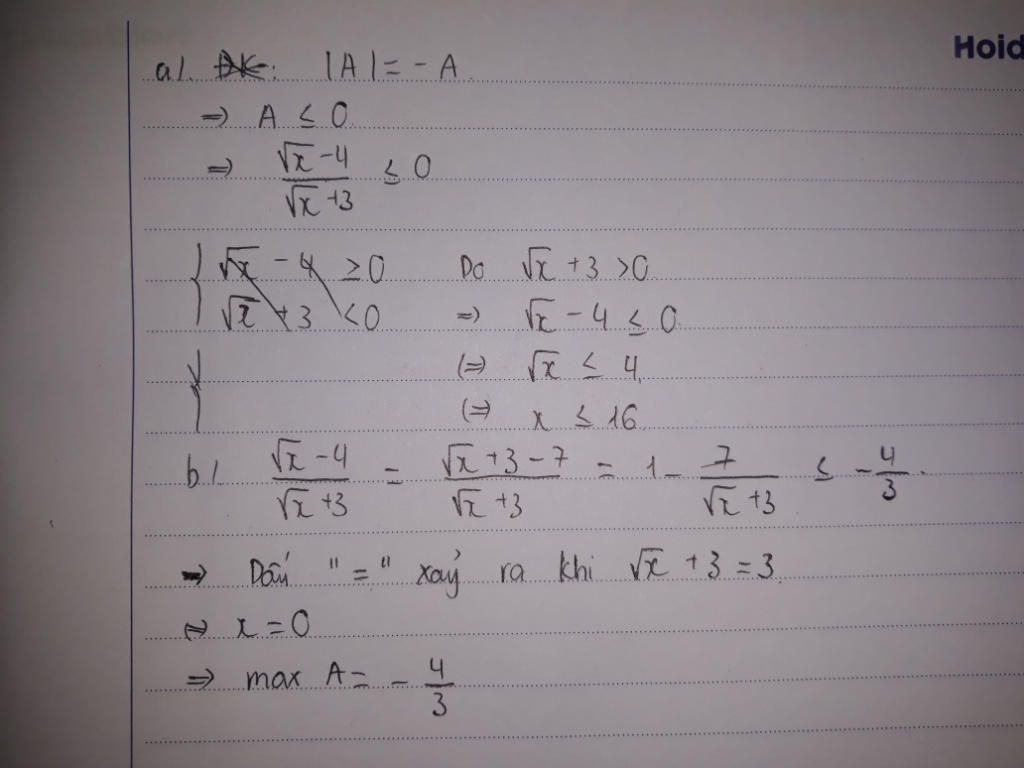 Hoid
a/. ĐK: |A| = - A
=> A ≤ 0
=> (√x - 4)/(√x + 3) ≤ 0
{ √x - 4 ≥ 0 Do √x + 3 > 0
√x + 3 < 0 => √x - 4 ≤ 0
(=> √x ≤ 4
(=> x ≤ 16
b/ (√x - 4)/(√x + 3) = (√x + 3 - 7)/(√x + 3) = 1 - 7/(√x + 3) ≤ - 4/3.
=> Dấu "=" xảy ra khi √x + 3 = 3
<=> x = 0
=> max A = - 4/3